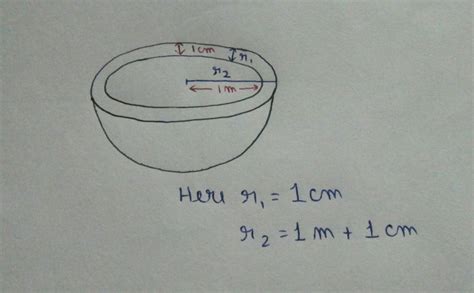 1cm
r₁
r₂
1m
Here r₁ = 1cm
r₂ = 1 m + 1 cm